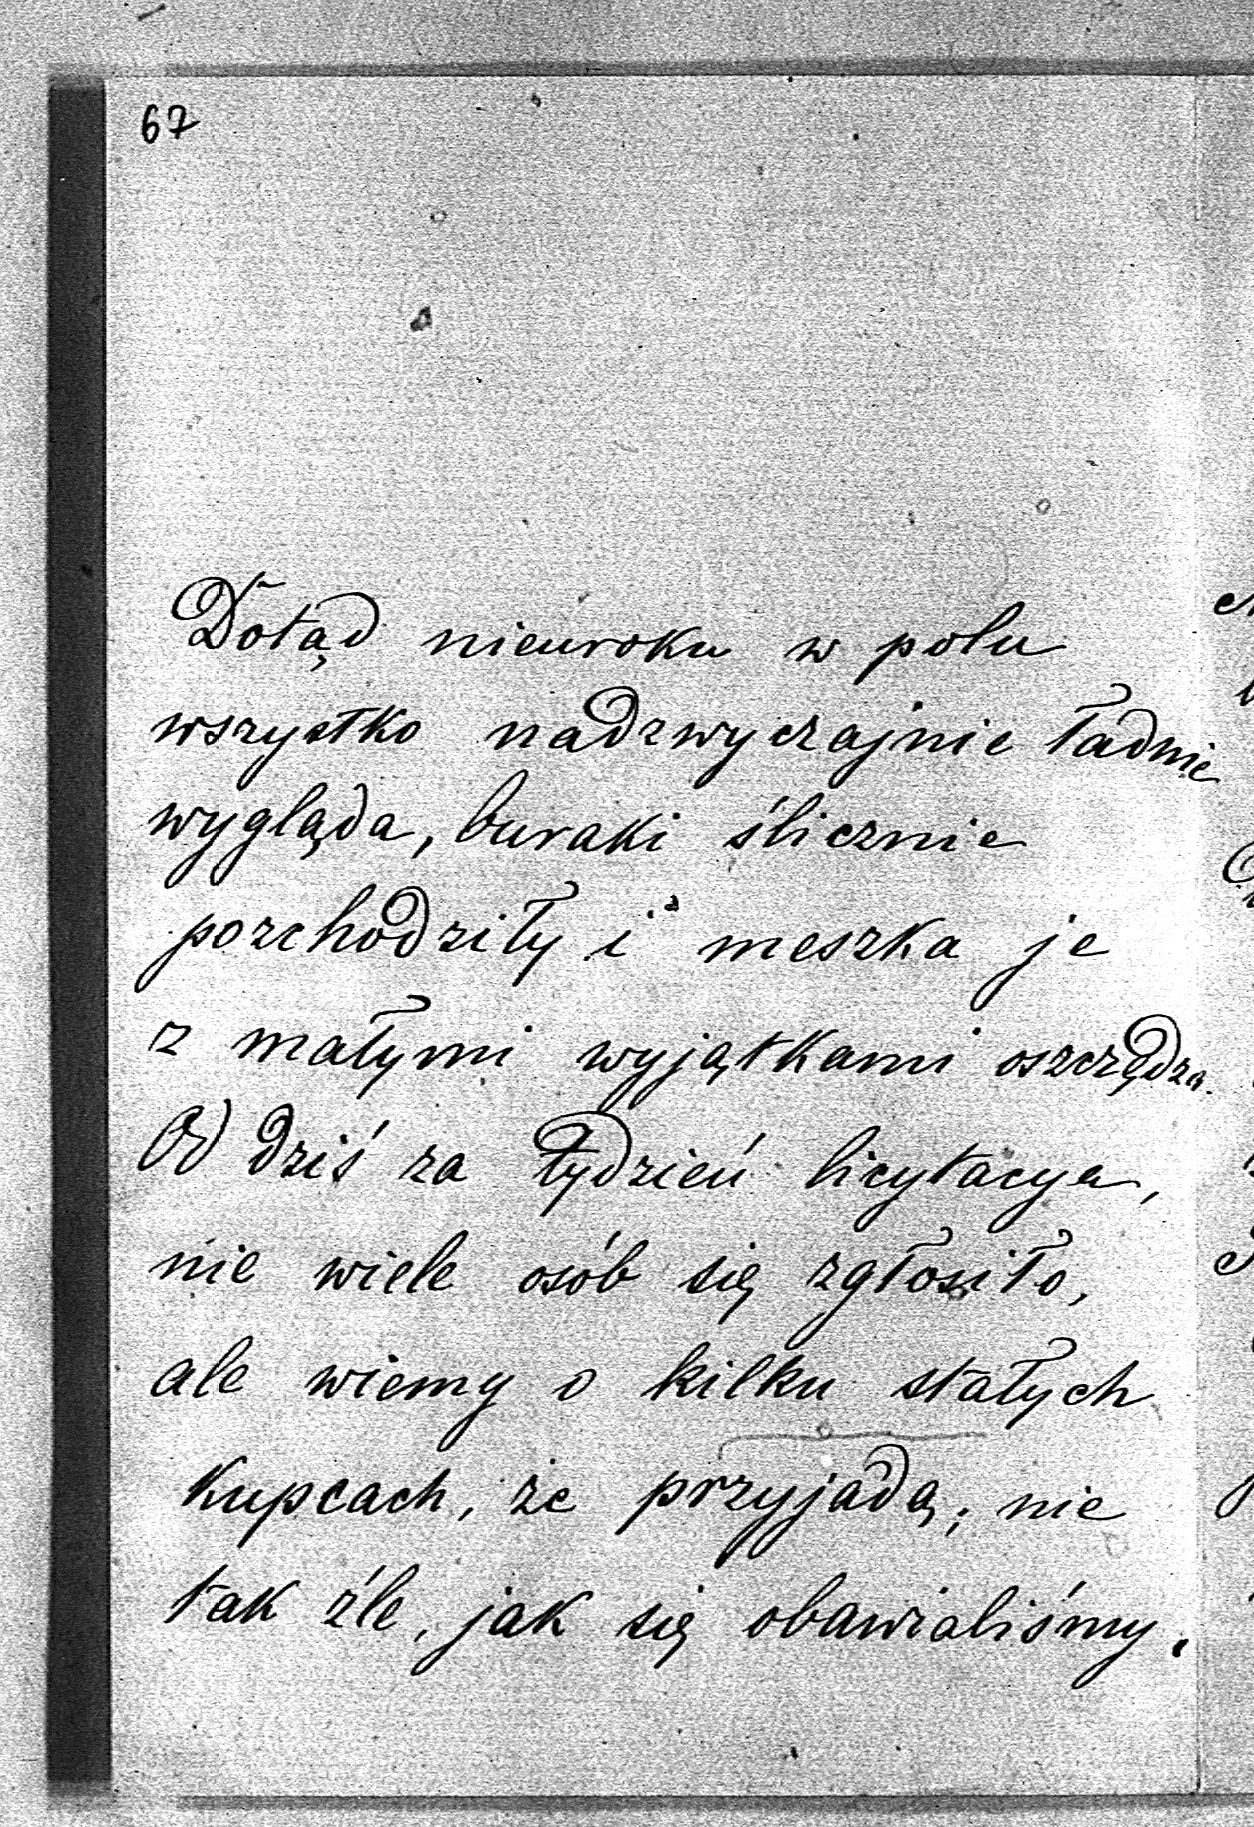 67
Dotąd nieuroku w polu
wszystko nadzwyczajnie ładnie
wygląda, buraki ślicznie
pozchodziły i meszka je
z małymi wyjątkami oszczędza.
Od dziś za tydzień licytacya,
nie wiele osób się zgłosiło,
ale wiemy o kilku stałych
kupcach, że przyjadą; nie
tak źle, jak się obawialiśmy.